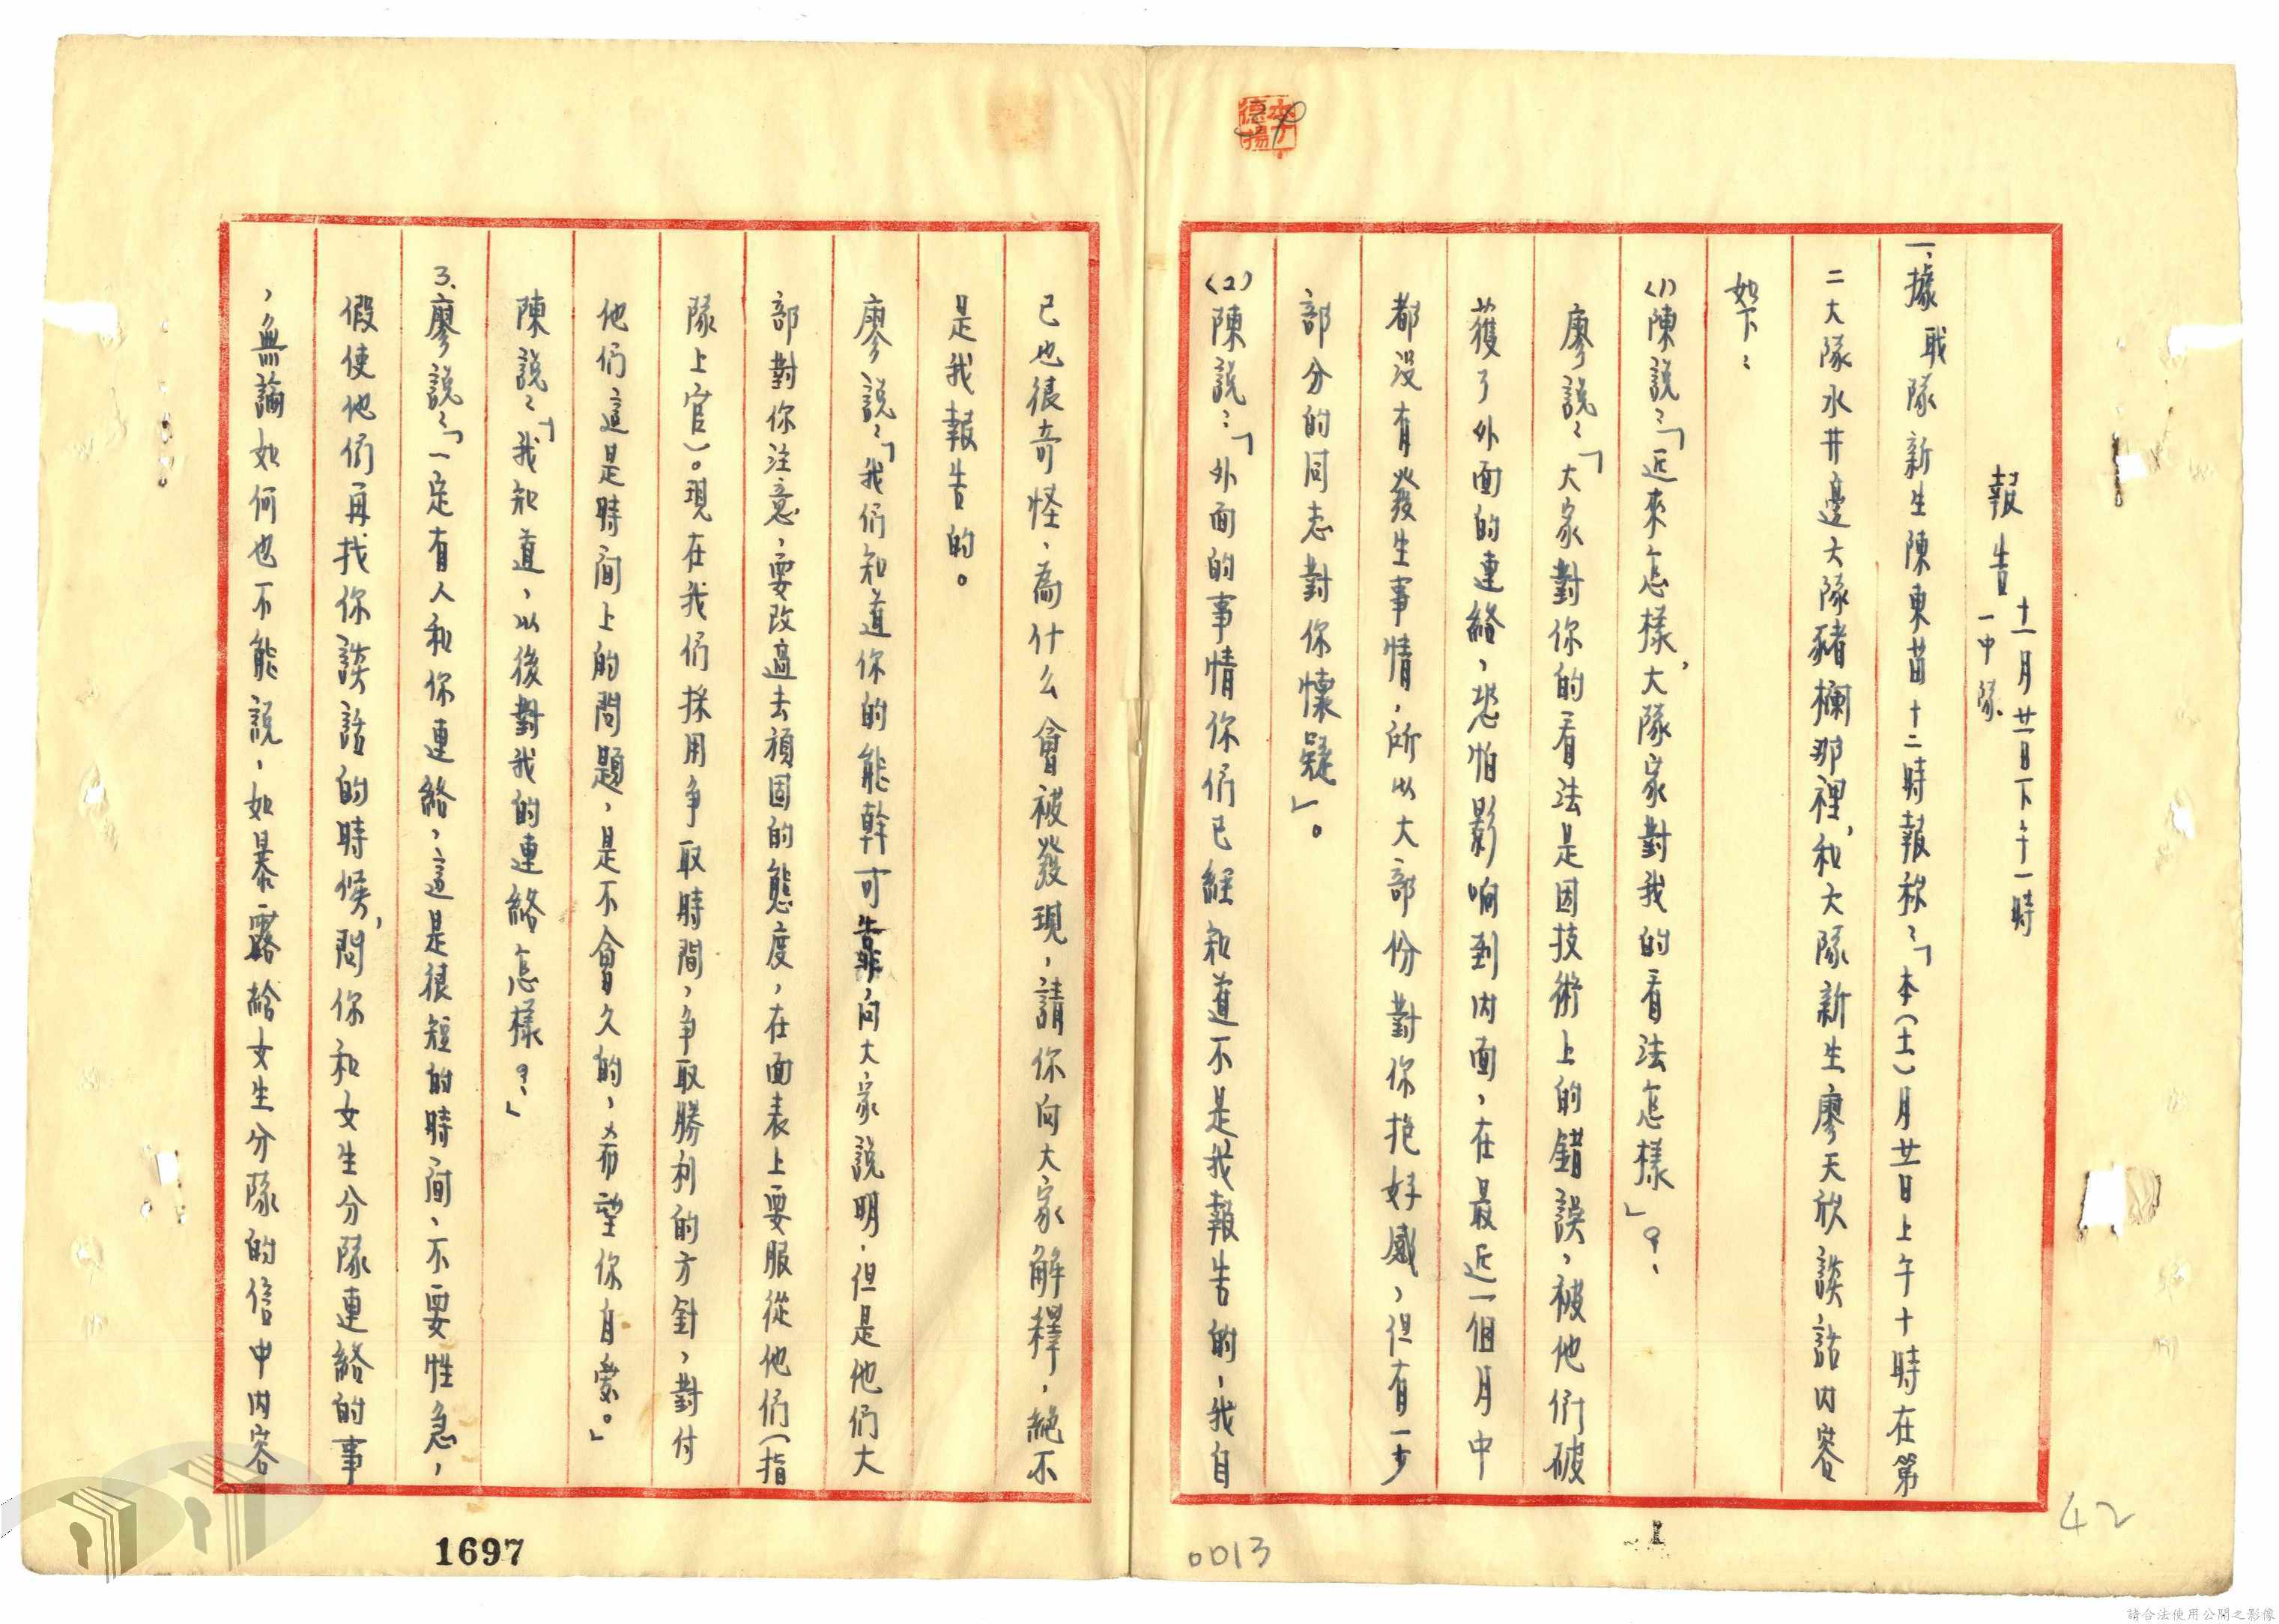 報告 十一月廿一日下午一時
一中隊
一、據戰隊新生陳東苗十二時報称:「本(十一)月廿一日上午十時在第
二大隊水井邊大隊豬欄那裡,和大隊新生廖天欣談話内容
如下:
(1)陳說:「近來怎樣,大隊家對我的看法怎樣」?
廖說:「大家對你的看法是因技術上的錯誤,被他们破
獲了外面的連絡,恐怕影响到内面,在最近一個月中
都没有發生事情,所以大部份對你抱好感,但有一少
部分的同志對你懷疑」。
(2)陳說:「外面的事情你们已經知道不是我報告的,我自
己也很奇怪,為什么會被發現,請你向大家解釋,絕不
是我報告的。
廖說:「我们知道你的能幹可靠,向大家說明,但是他们大
部對你注意,要改過去頑固的態度,在面表上要服從他们(指
隊上官)。現在我们採用争取時間,争取勝利的方針,對付
他们這是時间上的問題,是不會久的,希望你自愛。」
陳說:「我知道,以後對我的連絡怎樣?」
3、廖說:「一定有人和你連絡,這是很短的時间,不要性急,
假使他们再找你談話的時候,問你和女生分隊連絡的事
,無論如何也不能說,如暴露給女生分隊的信中内容
德揚
42
0013
1
1697
請合法使用公開之影像